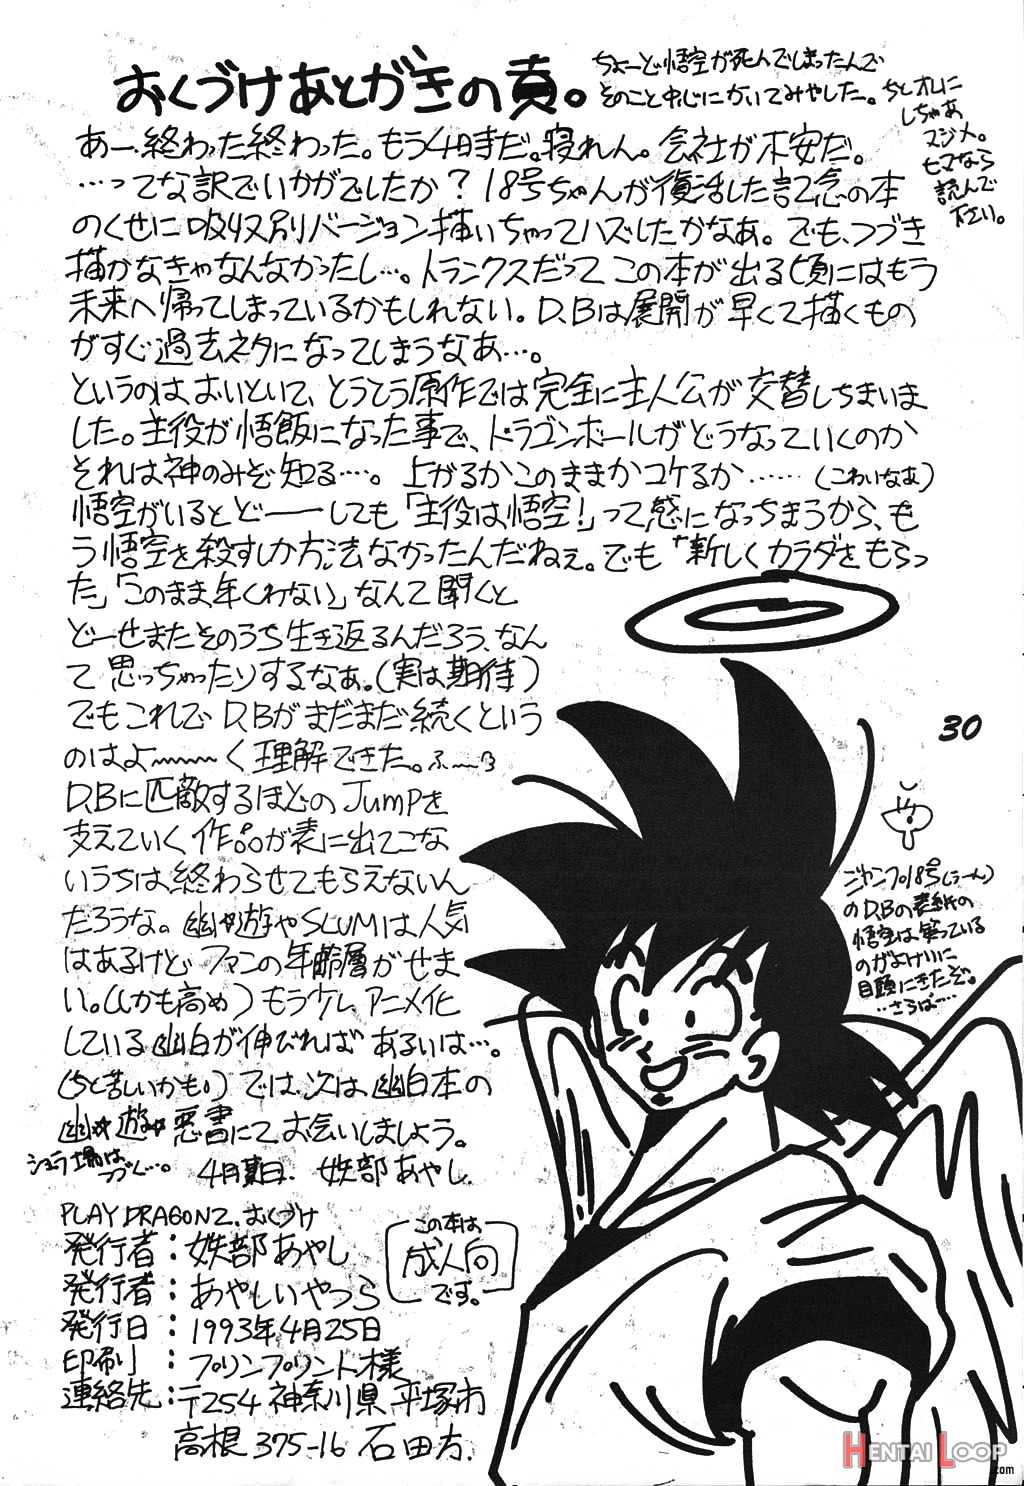 おくづけあとがきの頁。
ちょーど悟空が死んでしまったんで
そのこと中心にかいてみやした。
ちとオレに
しちゃあ
マジメ。
ヒマなら
読んで
下さい。
あー、終わった終わった。もう4時だ。寝れん。会社が不安だ。
…ってな訳でいかがでしたか?18号ちゃんが復活した記念の本
のくせに吸収別バージョン描いちゃってハズしたかなあ。でも、つづき
描かなきゃなんなかったし…。トランクスだってこの本が出る頃にはもう
未来へ帰ってしまっているかもしれない。D.Bは展開が早くて描くもの
がすぐ過去ネタになってしまうなあ…。
というのはおいといて、とうとう原作では完全に主人公が交替しちまいま
した。主役が悟飯になった事で、ドラゴンボールがどうなっていくのか
それは神のみぞ知る…。上がるかこのままかコケるか……(こわいなあ)
悟空がいるとどーーしても「主役は悟空!」って感になっちまうから、も
う悟空を殺すしか方法なかったんだねぇ。でも「新しくカラダをもらっ
た」「このまま年くわない」なんて聞くと
どーせまたそのうち生き返るんだろう、なん
て思っちゃったりするなぁ。(実は期待)
でもこれでD.Bがまだまだ続くという
のはよ~~~く理解できた。ふーぅ
D.Bに匹敵するほどのJUMPを
支えていく作品が表に出てこな
いうちは終わらせてもらえないん
だろうな。幽☆遊やSLUMは人気
はあるけど、ファンの年齢層がせま
い。(しかも高め)もうケレアニメ化
している幽白が伸びればあるいは…。
(ちと苦しいかも。)では、次は幽白本の
幽☆遊☆悪書にてお会いしましょう。
シュラ場は
つづく…。
4月某日、妖部あやし
30
ジャンプ18号(うーん)
のD.Bの表紙の
悟空は笑っている
のがよけいに
目頭にきたぞ。
…さらば…
PLAY DRAGON2. おくづけ
発行者:妖部あやし
発行者:あやしいやつら
発行日:1993年4月25日
印刷:プリンプリント様
連絡先:〒254 神奈川県平塚市
高根375-16 石田方.
この本は
成人向
です。
HENTAI LOOP
.com